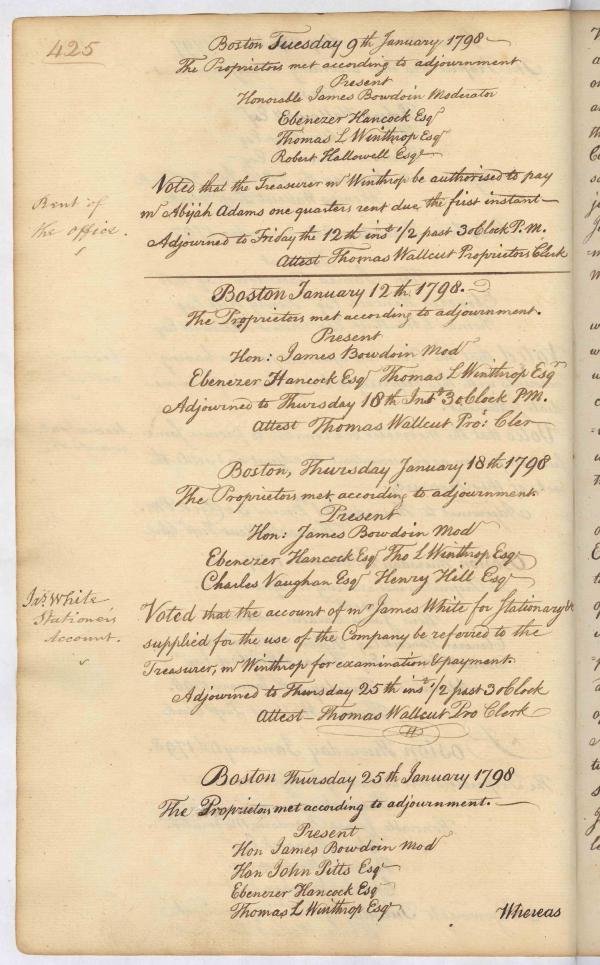 425
Boston Tuesday 9th January 1798
The Proprietors met according to adjournment
Present
Honorable James Bowdoin Moderator
Ebenezer Hancock Esqr
Thomas L Winthrop Esqr
Robert Hallowell Esqr
Rent of
the office.
Voted that the Treasurer mr Winthrop be authorised to pay
mr Abijah Adams one quarters rent due, the first instant—
Adjourned to Friday the 12th inst 1/2 past 3 oClock P.M.
Attest Thomas Wallcut Proprietors Clerk
Boston January 12th 1798.
The Proprietors met according to adjournment.
Present
Hon: James Bowdoin Modr
Ebenezer Hancock Esqr Thomas L Winthrop Esqr
Adjourned to Thursday 18th Inst 3 oClock PM.
Attest Thomas Wallcut Pro: Cler
Boston, Thursday January 18th 1798
The Proprietors met according to adjournment.
Present
Hon: James Bowdoin Modr
Ebenezer Hancock Esqr Tho L Winthrop Esqr
Charles Vaughan Esqr Henry Hill Esqr
Jas White
Stationers
Account.
Voted that the account of mr James White for Stationary &c
supplied for the use of the Company be referred to the
Treasurer, mr Winthrop for examination & payment.
Adjourned to Thursday 25th inst 1/2 past 3 oClock
Attest— Thomas Wallcut Pro Clerk
Boston Thursday 25th January 1798
The Proprietors met according to adjournment.—
Present
Hon James Bowdoin Modr
Hon John Pitts Esqr
Ebenezer Hancock Esqr
Thomas L Winthrop Esqr
Whereas